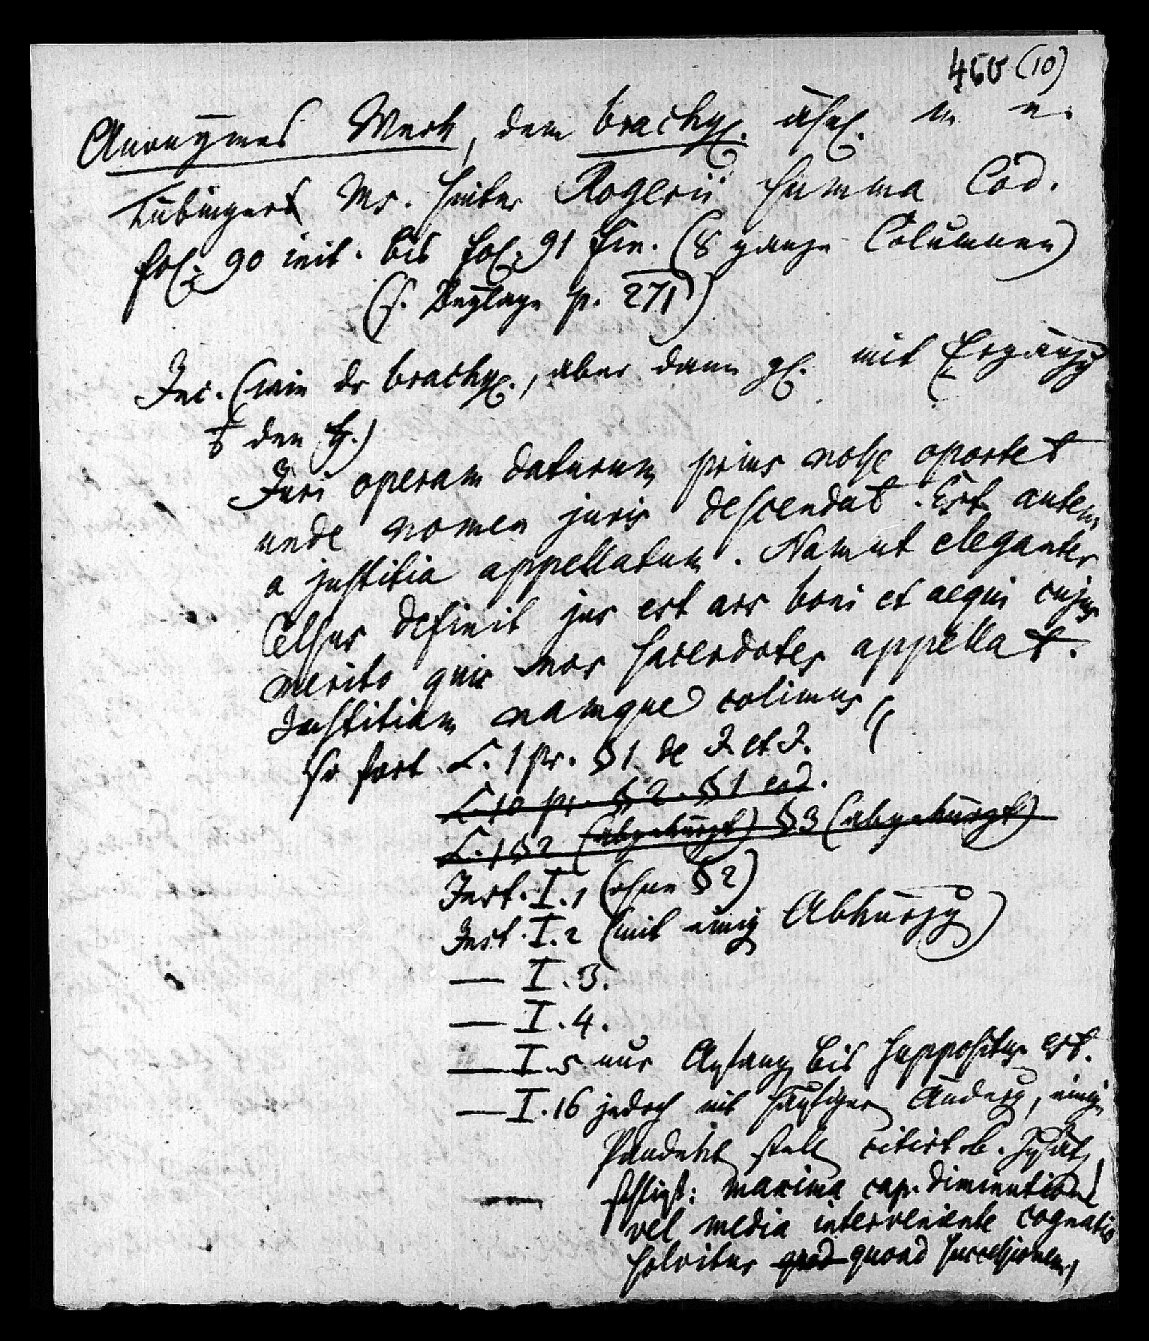 450 (10)
Anonymes Werk, dem brachyl. ähnl. in e.
Tübinger Ms. hinter Rogerii Summa Cod.
fol. 90 init. bis fol. 91 fin. (8 ganze Columnen)
(s. Beylage p. 271)
Inc. (wie der brachyl., aber dann gl. mit Ergänzg
den
Juri operam daturum prius nosse oportet
unde nomen juris descendat. Est autem
a justitia appellatum. Nam ut eleganter
Celsus definit jus est ars boni et aequi cujus
merito quis nos sacerdotes appellat.
Justitiam namque colimus
So fort L. 1 pr. §1 de J. et J.
L. 10 pr. §2. §1 eod.
L. 1 §2 (abgekürzt) §3 (abgekürzt)
Inst. I.1 (ohne §2)
Inst. I.2 (mit einig Abkürzg)
— I.3.
— I.4.
— I.5 nur Anfang bis suppositus est.
— I.16 jedoch mit häufiger Änderg, einige
Pandekt stell citirt
— schließt: maxima cap. diminutione
vel media interveniente cognatio
solvitur quod quoad successionem